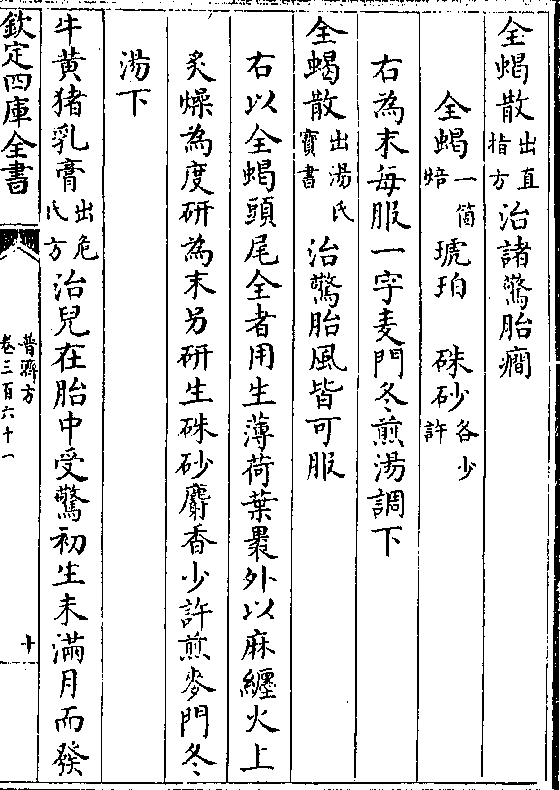 全蝎散出直指方治諸驚胎癎
全蝎一箇焙琥珀 硃砂各少許
右為末每服一字麦門冬煎湯調下
全蝎散出湯氏寳書 治驚胎風皆可服
右以全蝎頭尾全者用生薄荷葉褁外以麻纒火上
炙燥為度研為末另研生硃砂麝香少許煎麥門冬
湯下
牛黄猪乳膏出危氏方治兒在胎中受驚初生未滿月而發
欽定四庫全書
普濟方
卷三百六十一
十